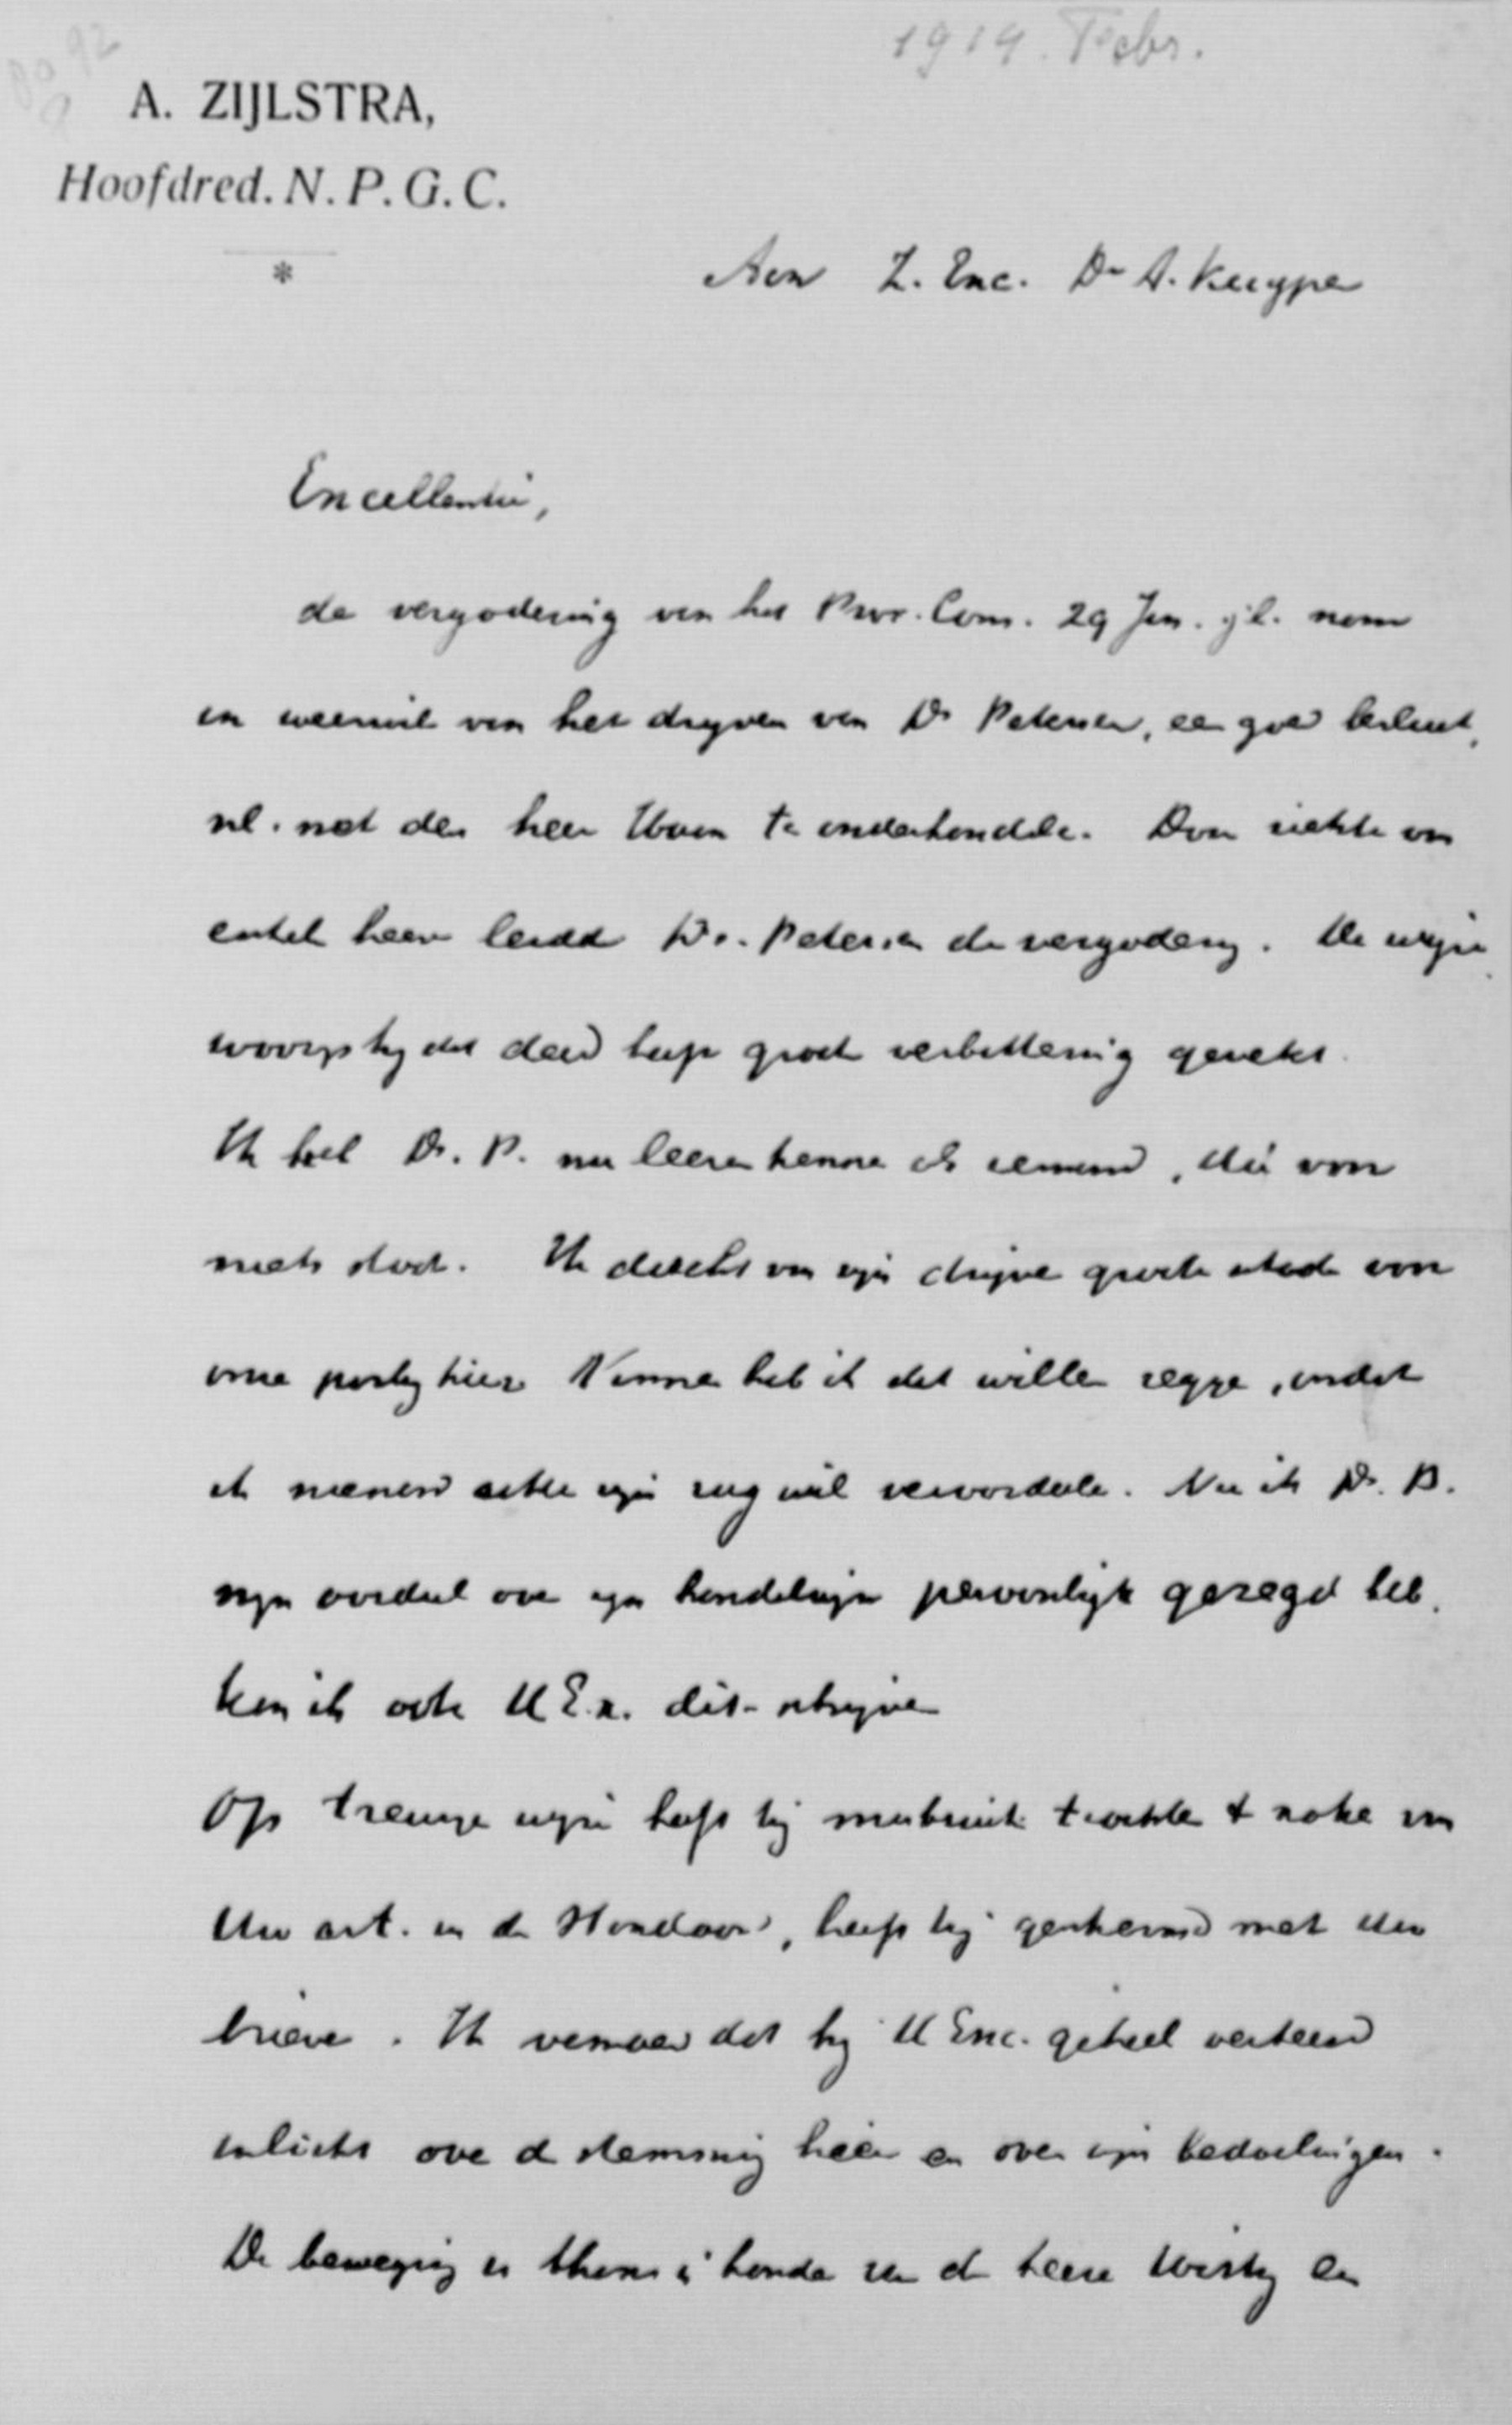 1919. Febr.
A. ZIJLSTRA,
Hoofdred. N. P. G. C.
*
Aan Z. Exc. Dr A. Kuyper
Excellentie,
de vergadering van het Prov. Com. 29 Jan. jl. nam
in weerwil van het drijven van Dr Petersen, een goed besluit,
nl. met den heer te onderhandelen. Door ziekte van
enkele heeren leidde Dr. Petersen de vergadering. De wijze
waarop hij dat deed heeft groote verbittering gewekt.
Ik heb Dr. P. nu leeren kennen als iemand, die voor
niets staat. Ik ducht van zijn drijven groote schade voor
onze partij hier. heb ik dat willen zeggen, omdat
ik niemand achter zijn rug wil veroordeelen. Nu ik Dr. P.
mijn oordeel over zijn handelingen persoonlijk gezegd heb,
kan ik ook U Ex. dit schrijven
Op wijze heeft hij misbruik trachten te maken van
Uw art. in de Standaard, heeft hij geschermd met uw
brieven. Ik vermoed dat hij U Exc. geheel verkeerd
inlicht over de stemming hier en over zijn bedoelingen.
De beweging is thans in handen van de heeren en